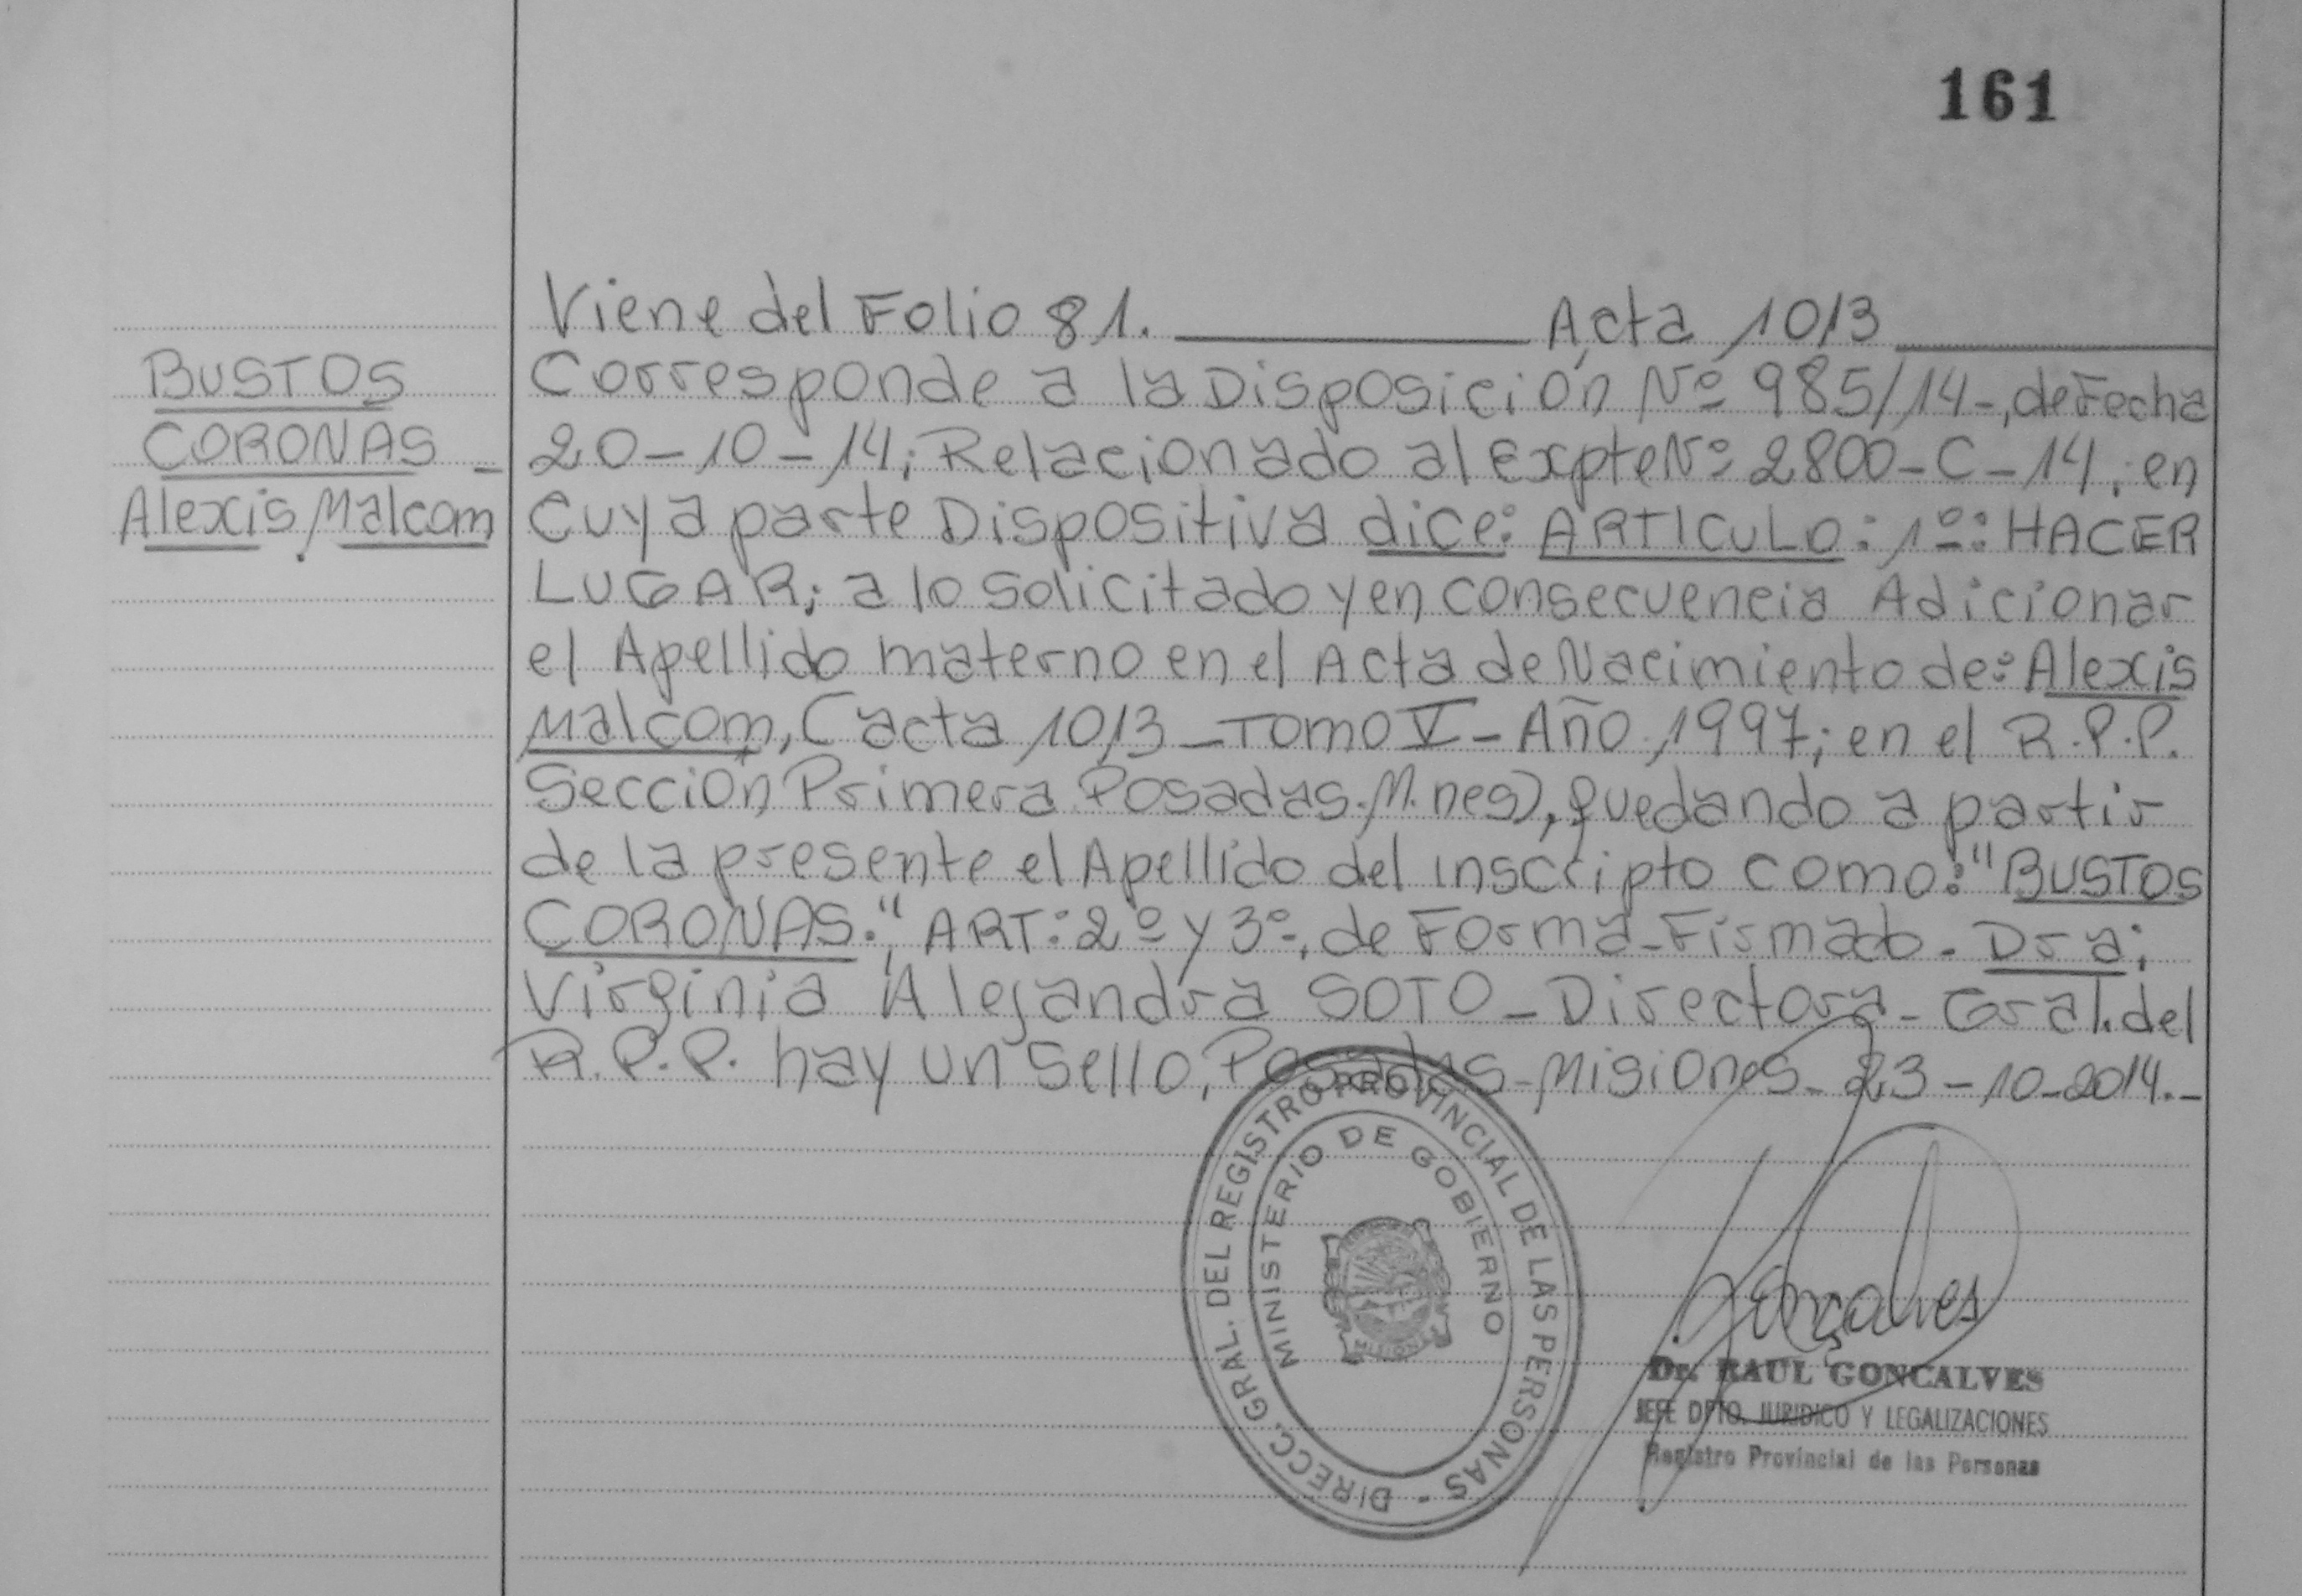 161
Viene del Folio 81. Acta 1013
BUSTOS
CORONAS _
Alexis Malcom
Corresponde a la Disposición Nº 985/14-, de Fecha
20-10-14; Relacionado al Expte Nº 2800-C-14; en
Cuya parte Dispositiva dice: ARTICULO: 1º: HACER
LUGAR; a lo solicitado y en consecuencia Adicionar
el Apellido materno en el Acta de Nacimiento de: Alexis
Malcom, (acta 1013 - Tomo V - Año 1997; en el R.P.P.
Sección Primera Posadas. M.nes), quedando a partir
de la presente el Apellido del inscripto como: "BUSTOS
CORONAS." ART: 2º y 3º, de Forma - Firmado. Dra;
Virginia Alejandra SOTO - Directora - Gral. del
R.P.P. hay un Sello, Posadas - Misiones - 23-10-2014.-
DIRECC. GRAL. DEL REGISTRO PROVINCIAL DE LAS PERSONAS -
MINISTERIO DE GOBIERNO
MISIONES
Gonçalves
Dr. RAUL GONCALVES
JEFE DPTO. JURIDICO Y LEGALIZACIONES
Registro Provincial de las Personas